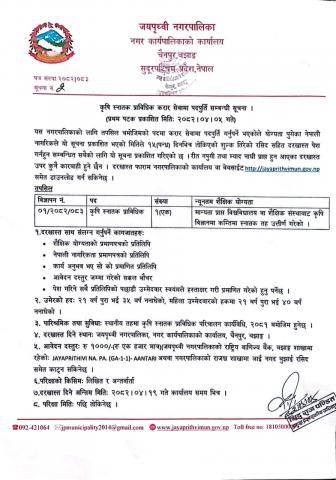 जयपृथ्वी नगरपालिका
नगर कार्यपालिकाको कार्यालय
चैनपुर, बझाङ
सुदूरपश्चिम प्रदेश, नेपाल
पत्र संख्या २०८२।०८३
सूचना नं. १
कृषि स्नातक प्राविधिक करार सेवामा पदपुर्ति सम्बन्धी सूचना ।
(प्रथम पटक प्रकाशित मितिः २०८२।०४।०५ गते)
यस नगरपालिकाको लागि तपसिल बमोजिमको पदमा करार सेवामा पदपुर्ति गर्नुपर्ने भएकोले योग्यता पुगेका नेपाली
नागरिकले यो सूचना प्रकाशित भएको मितिले १५(पन्ध्र) दिनभित्र तोकिएको शुल्क तिरेको रसिद सहित दरखास्त पेश
गर्नहुन सम्बन्धित सबैको लागि यो सूचना प्रकाशित गरिएको छ । रीत नपुगी तथा म्याद नाघी प्राप्त हुन आएका दरखास्त
उपर कुनै कारवाही हुने छैन । दरखास्त फाराम नगरपालिकाको कार्यालय वा वेबसाईट http://jayaprithvimun.gov.np
समेत डाउनलोड गर्न सकिनेछ ।
तपसिल
विज्ञापन नं. पद संख्या न्यूनतम शैक्षिक योग्यता
०१/२०८२/०८३ कृषि स्नातक प्राविधिक १(एक) मान्यता प्राप्त विश्वविद्यालय वा शैक्षिक संस्थाबाट कृषि
विज्ञानमा कम्तिमा स्नातक तह उत्तीर्ण गरेको ।
१.दरखास्त साथ संलग्न गर्नुपर्ने कागजातहरू:
• शैक्षिक योग्यताको प्रमाणपत्रको प्रतिलिपि
• नेपाली नागरिकता प्रमाणपत्रको प्रतिलिपि
• कार्य अनुभव भए सो को प्रमाणित प्रतिलिपि
• आवेदन दस्तुर जम्मा गरेको सक्कल भौचर
• पेश गरिने सबै प्रतिलिपिको पछाडी उम्मेदवार स्वयंमले हस्ताक्षर गरी प्रमाणित गरेको हुनु पर्नेछ ।
२. उमेरको हदः २१ वर्ष पुरा भई ३५ वर्ष ननाघेको, महिला उम्मेदवारको हकमा २१ वर्ष पुरा भई ४० वर्ष
ननाघेको ।
३. पारिश्रमिक तथा सुविधा: स्थानीय तहमा कृषि स्नातक प्राविधिक परिचालन कार्यविधि, २०८१ बमोजिम हुनेछ ।
४. दरखास्त दिने स्थान: जयपृथ्वी नगरपालिका, नगर कार्यपालिकाको कार्यालय, चैनपुर, बझाङ ।
५. आवेदन दस्तुर: रु १०००/-(रु एक हजार मात्र)जयपृथ्वी नगरपालिकाको राष्ट्रिय वाणिज्य बैंक, बझाङ शाखामा
रहेको: JAYAPRITHIVI NA. PA. (GA-1-1)- AANTARI अथवा नगरपालिकाको राजश्व शाखामा आई नगद भुझाई रसिद
समेत काट्न सकिनेछ ।
६.परिक्षाको किसिम: लिखित र अन्तर्वार्ता
७.दरखास्त दिने अन्तिम मिति: २०८२।०४।१९ गते कार्यालय समय भित्र ।
८. परिक्षा मिति: पछि तोकिनेछ ।
092-421064 jpmunicipality2014@gmail.com www.jayaprithvimun.gov.np Toll free no: